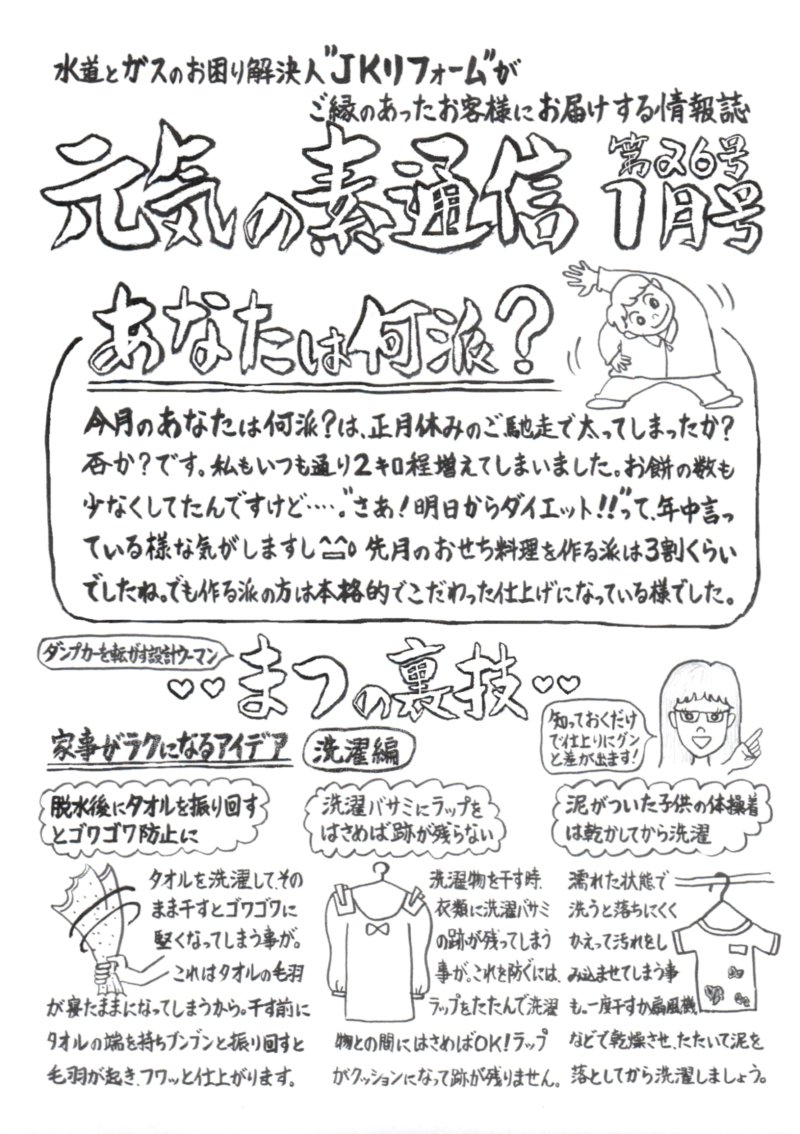 水道とガスのお困り解決人"JKリフォーム"が
ご縁のあったお客様にお届けする情報誌
元気の素通信 第26号
1月号
あなたは何派？
今月のあなたは何派？は、正月休みのご馳走で太ってしまったか？
否か？です。私もいつも通り2キロ程増えてしまいました。お餅の数も
少なくしてたんですけど‥‥。"さあ！明日からダイエット!!"って、年中言っ
ている様な気がしますし^^;o 先月のおせち料理を作る派は3割くらい
でしたね。でも作る派の方は本格的でこだわった仕上げになっている様でした。
ダンプカーを転がす設計ウーマン
♡♡まつの裏技♡♡
家事がラクになるアイデア 洗濯編
知っておくだけ
で仕上りにグン
と差が出ます！
脱水後にタオルを振り回す
とゴワゴワ防止に
タオルを洗濯して、その
まま干すとゴワゴワに
堅くなってしまう事が。
これはタオルの毛羽
が寝たままになってしまうから。干す前に
タオルの端を持ちブンブンと振り回すと
毛羽が起き、フワッと仕上がります。
洗濯バサミにラップを
はさめば跡が残らない
洗濯物を干す時、
衣類に洗濯バサミ
の跡が残ってしまう
事が。これを防ぐには、
ラップをたたんで洗濯
物との間にはさめばOK！ラップ
がクッションになって跡が残りません。
泥がついた子供の体操着
は乾かしてから洗濯
濡れた状態で
洗うと落ちにくく
かえって汚れをし
み込ませてしまう事
も。一度干すか扇風機
などで乾燥させ、たたいて泥を
落としてから洗濯しましょう。